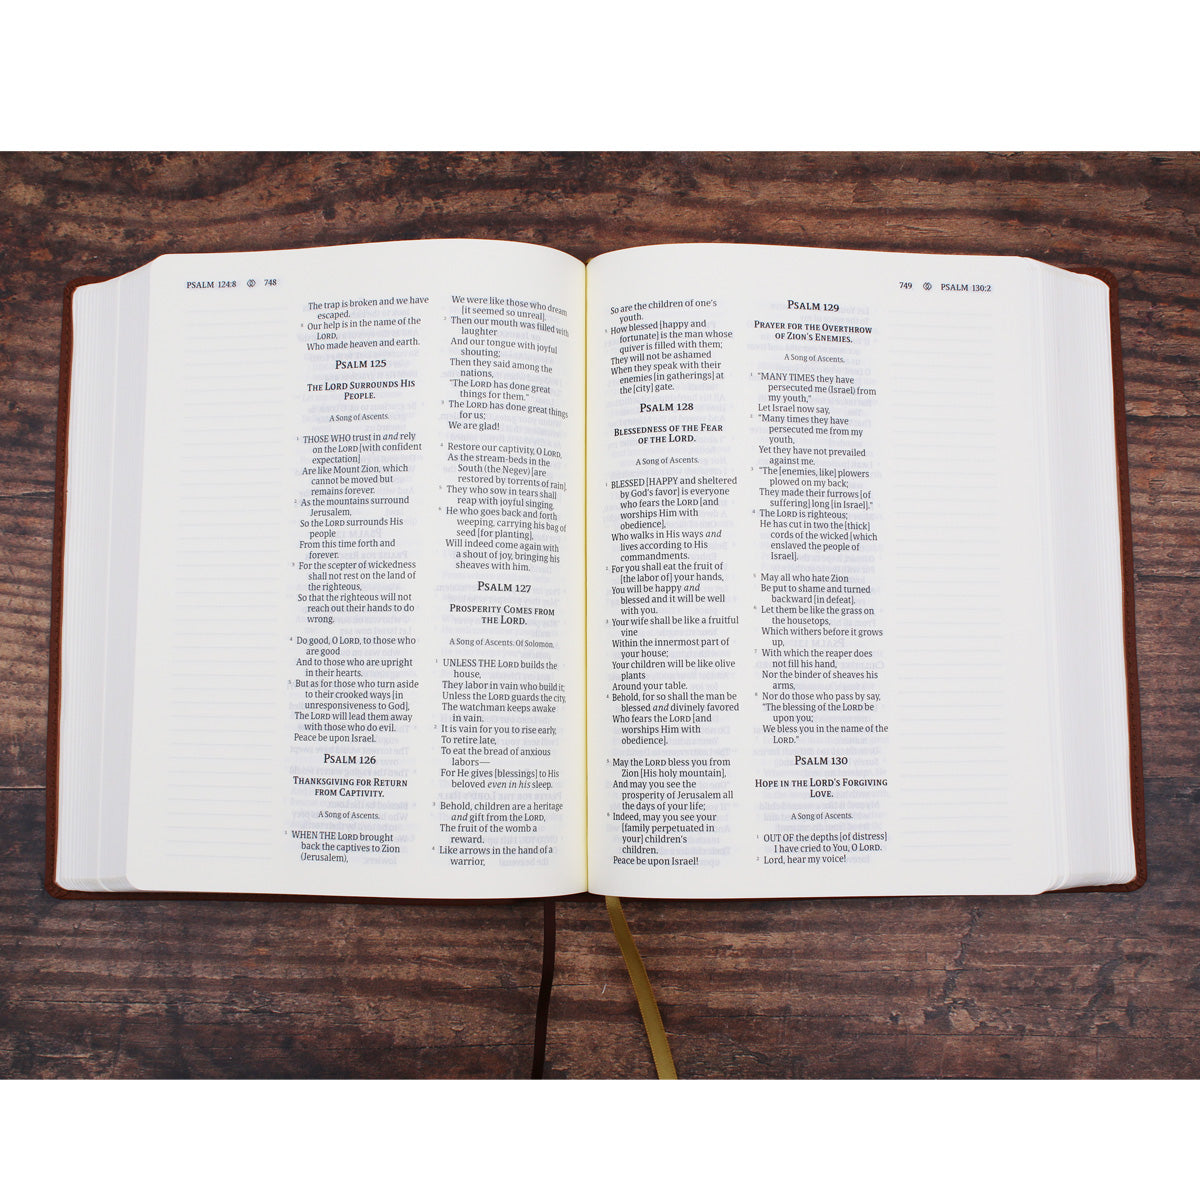 PSALM 124:8 748
The trap is broken and we have
escaped.
8 Our help is in the name of the
LORD,
Who made heaven and earth.
PSALM 125
THE LORD SURROUNDS HIS
PEOPLE.
A Song of Ascents.
1 THOSE WHO trust in and rely
on the LORD [with confident
expectation]
Are like Mount Zion, which
cannot be moved but
remains forever.
2 As the mountains surround
Jerusalem,
So the LORD surrounds His
people
From this time forth and
forever.
3 For the scepter of wickedness
shall not rest on the land of
the righteous,
So that the righteous will not
reach out their hands to do
wrong.
4 Do good, O LORD, to those who
are good
And to those who are upright
in their hearts.
5 But as for those who turn aside
to their crooked ways [in
unresponsiveness to God],
The LORD will lead them away
with those who do evil.
Peace be upon Israel.
PSALM 126
THANKSGIVING FOR RETURN
FROM CAPTIVITY.
A Song of Ascents.
1 WHEN THE LORD brought
back the captives to Zion
(Jerusalem),
We were like those who dream
[it seemed so unreal].
2 Then our mouth was filled with
laughter
And our tongue with joyful
shouting;
Then they said among the
nations,
"The LORD has done great
things for them."
3 The LORD has done great things
for us;
We are glad!
4 Restore our captivity, O LORD,
As the stream-beds in the
South (the Negev) [are
restored by torrents of rain].
5 They who sow in tears shall
reap with joyful singing.
6 He who goes back and forth
weeping, carrying his bag of
seed [for planting],
Will indeed come again with
a shout of joy, bringing his
sheaves with him.
PSALM 127
PROSPERITY COMES FROM
THE LORD.
A Song of Ascents. Of Solomon.
1 UNLESS THE LORD builds the
house,
They labor in vain who build it;
Unless the LORD guards the city,
The watchman keeps awake
in vain.
2 It is vain for you to rise early,
To retire late,
To eat the bread of anxious
labors—
For He gives [blessings] to His
beloved even in his sleep.
3 Behold, children are a heritage
and gift from the LORD,
The fruit of the womb a
reward.
4 Like arrows in the hand of a
warrior,
749 PSALM 130:2
So are the children of one's
youth.
5 How blessed [happy and
fortunate] is the man whose
quiver is filled with them;
They will not be ashamed
When they speak with their
enemies [in gatherings] at
the [city] gate.
PSALM 128
BLESSEDNESS OF THE FEAR
OF THE LORD.
A Song of Ascents.
1 BLESSED [HAPPY and sheltered
by God's favor] is everyone
who fears the LORD [and
worships Him with
obedience],
Who walks in His ways and
lives according to His
commandments.
2 For you shall eat the fruit of
[the labor of] your hands,
You will be happy and
blessed and it will be well
with you.
3 Your wife shall be like a fruitful
vine
Within the innermost part of
your house;
Your children will be like olive
plants
Around your table.
4 Behold, for so shall the man be
blessed and divinely favored
Who fears the LORD [and
worships Him with
obedience].
5 May the LORD bless you from
Zion [His holy mountain],
And may you see the
prosperity of Jerusalem all
the days of your life;
6 Indeed, may you see your
[family perpetuated in
your] children's
children.
Peace be upon Israel!
PSALM 129
PRAYER FOR THE OVERTHROW
OF ZION'S ENEMIES.
A Song of Ascents.
1 "MANY TIMES they have
persecuted me (Israel) from
my youth,"
Let Israel now say,
2 "Many times they have
persecuted me from my
youth,
Yet they have not prevailed
against me.
3 "The [enemies, like] plowers
plowed on my back;
They made their furrows [of
suffering] long [in Israel]."
4 The LORD is righteous;
He has cut in two the [thick]
cords of the wicked [which
enslaved the people of
Israel].
5 May all who hate Zion
Be put to shame and turned
backward [in defeat].
6 Let them be like the grass on
the housetops,
Which withers before it grows
up,
7 With which the reaper does
not fill his hand,
Nor the binder of sheaves his
arms,
8 Nor do those who pass by say,
"The blessing of the LORD be
upon you;
We bless you in the name of the
LORD."
PSALM 130
HOPE IN THE LORD'S FORGIVING
LOVE.
A Song of Ascents.
1 OUT OF the depths [of distress]
I have cried to You, O LORD.
2 Lord, hear my voice!